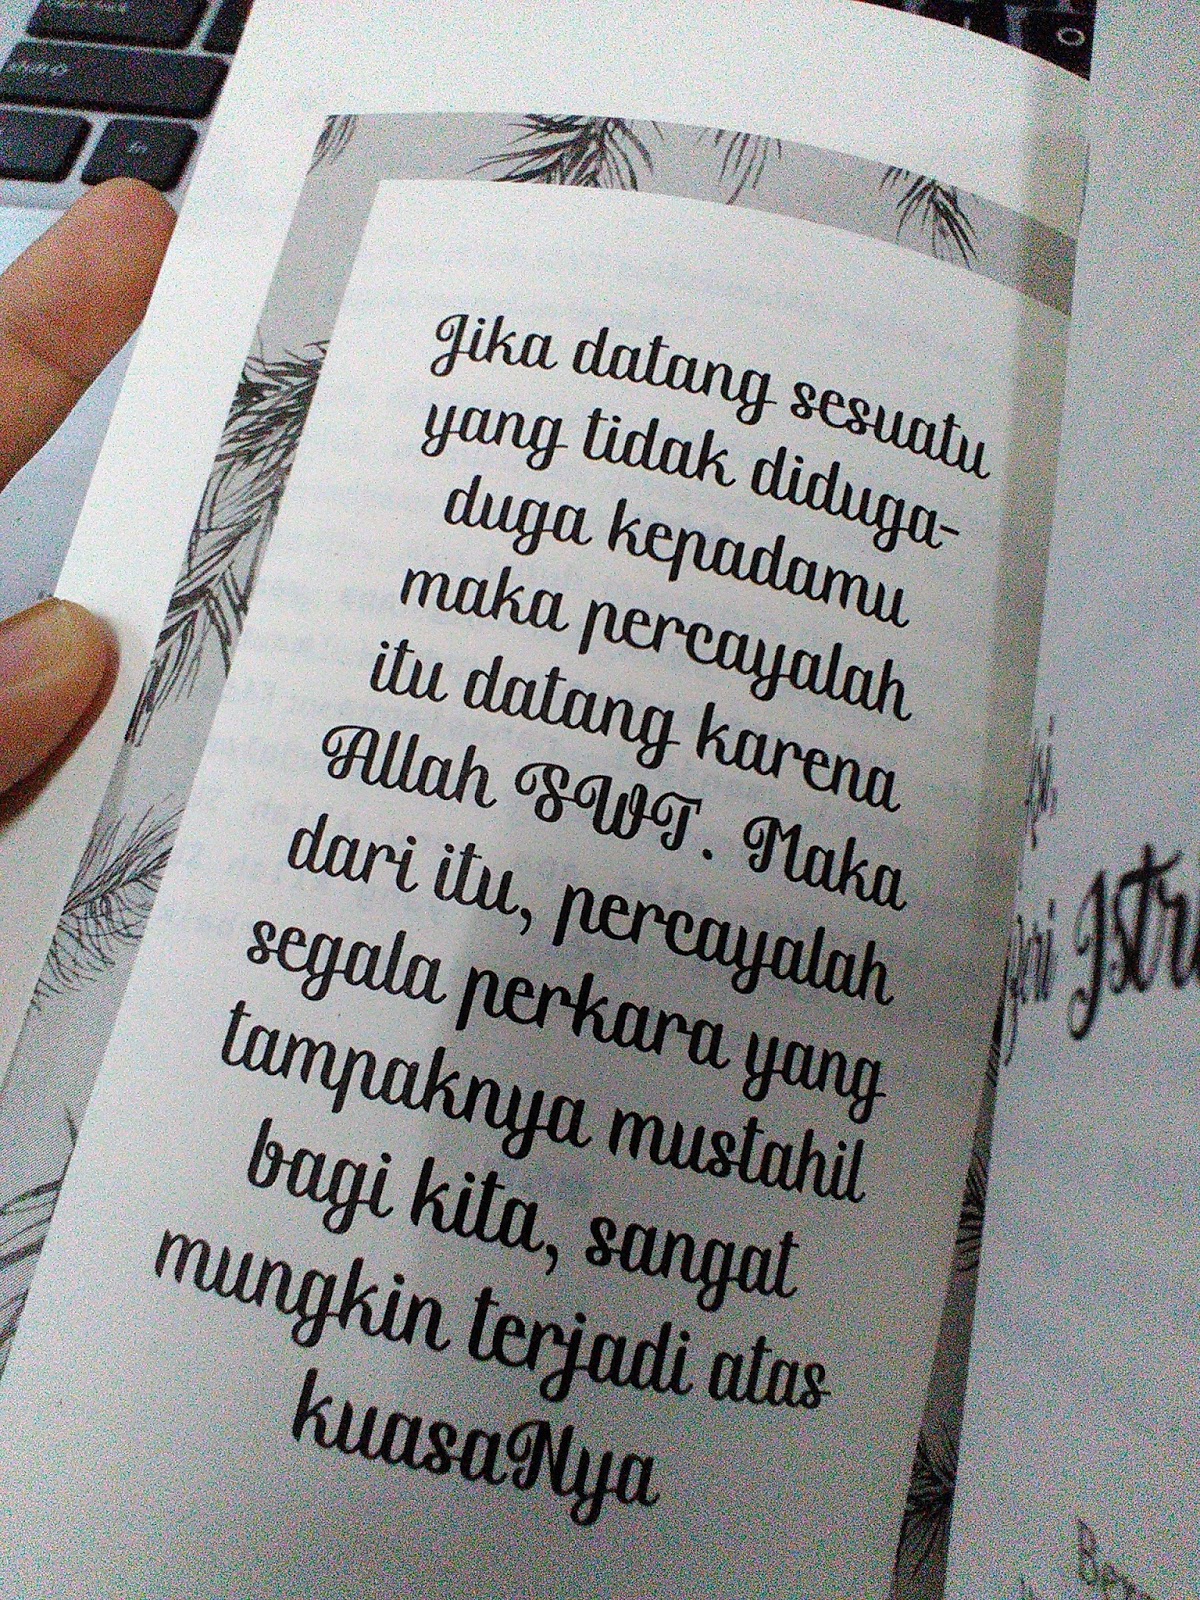 Jika datang sesuatu
yang tidak diduga-
duga kepadamu
maka percayalah
itu datang karena
Allah SWT. Maka
dari itu, percayalah
segala perkara yang
tampaknya mustahil
bagi kita, sangat
mungkin terjadi atas
kuasaNya
fn